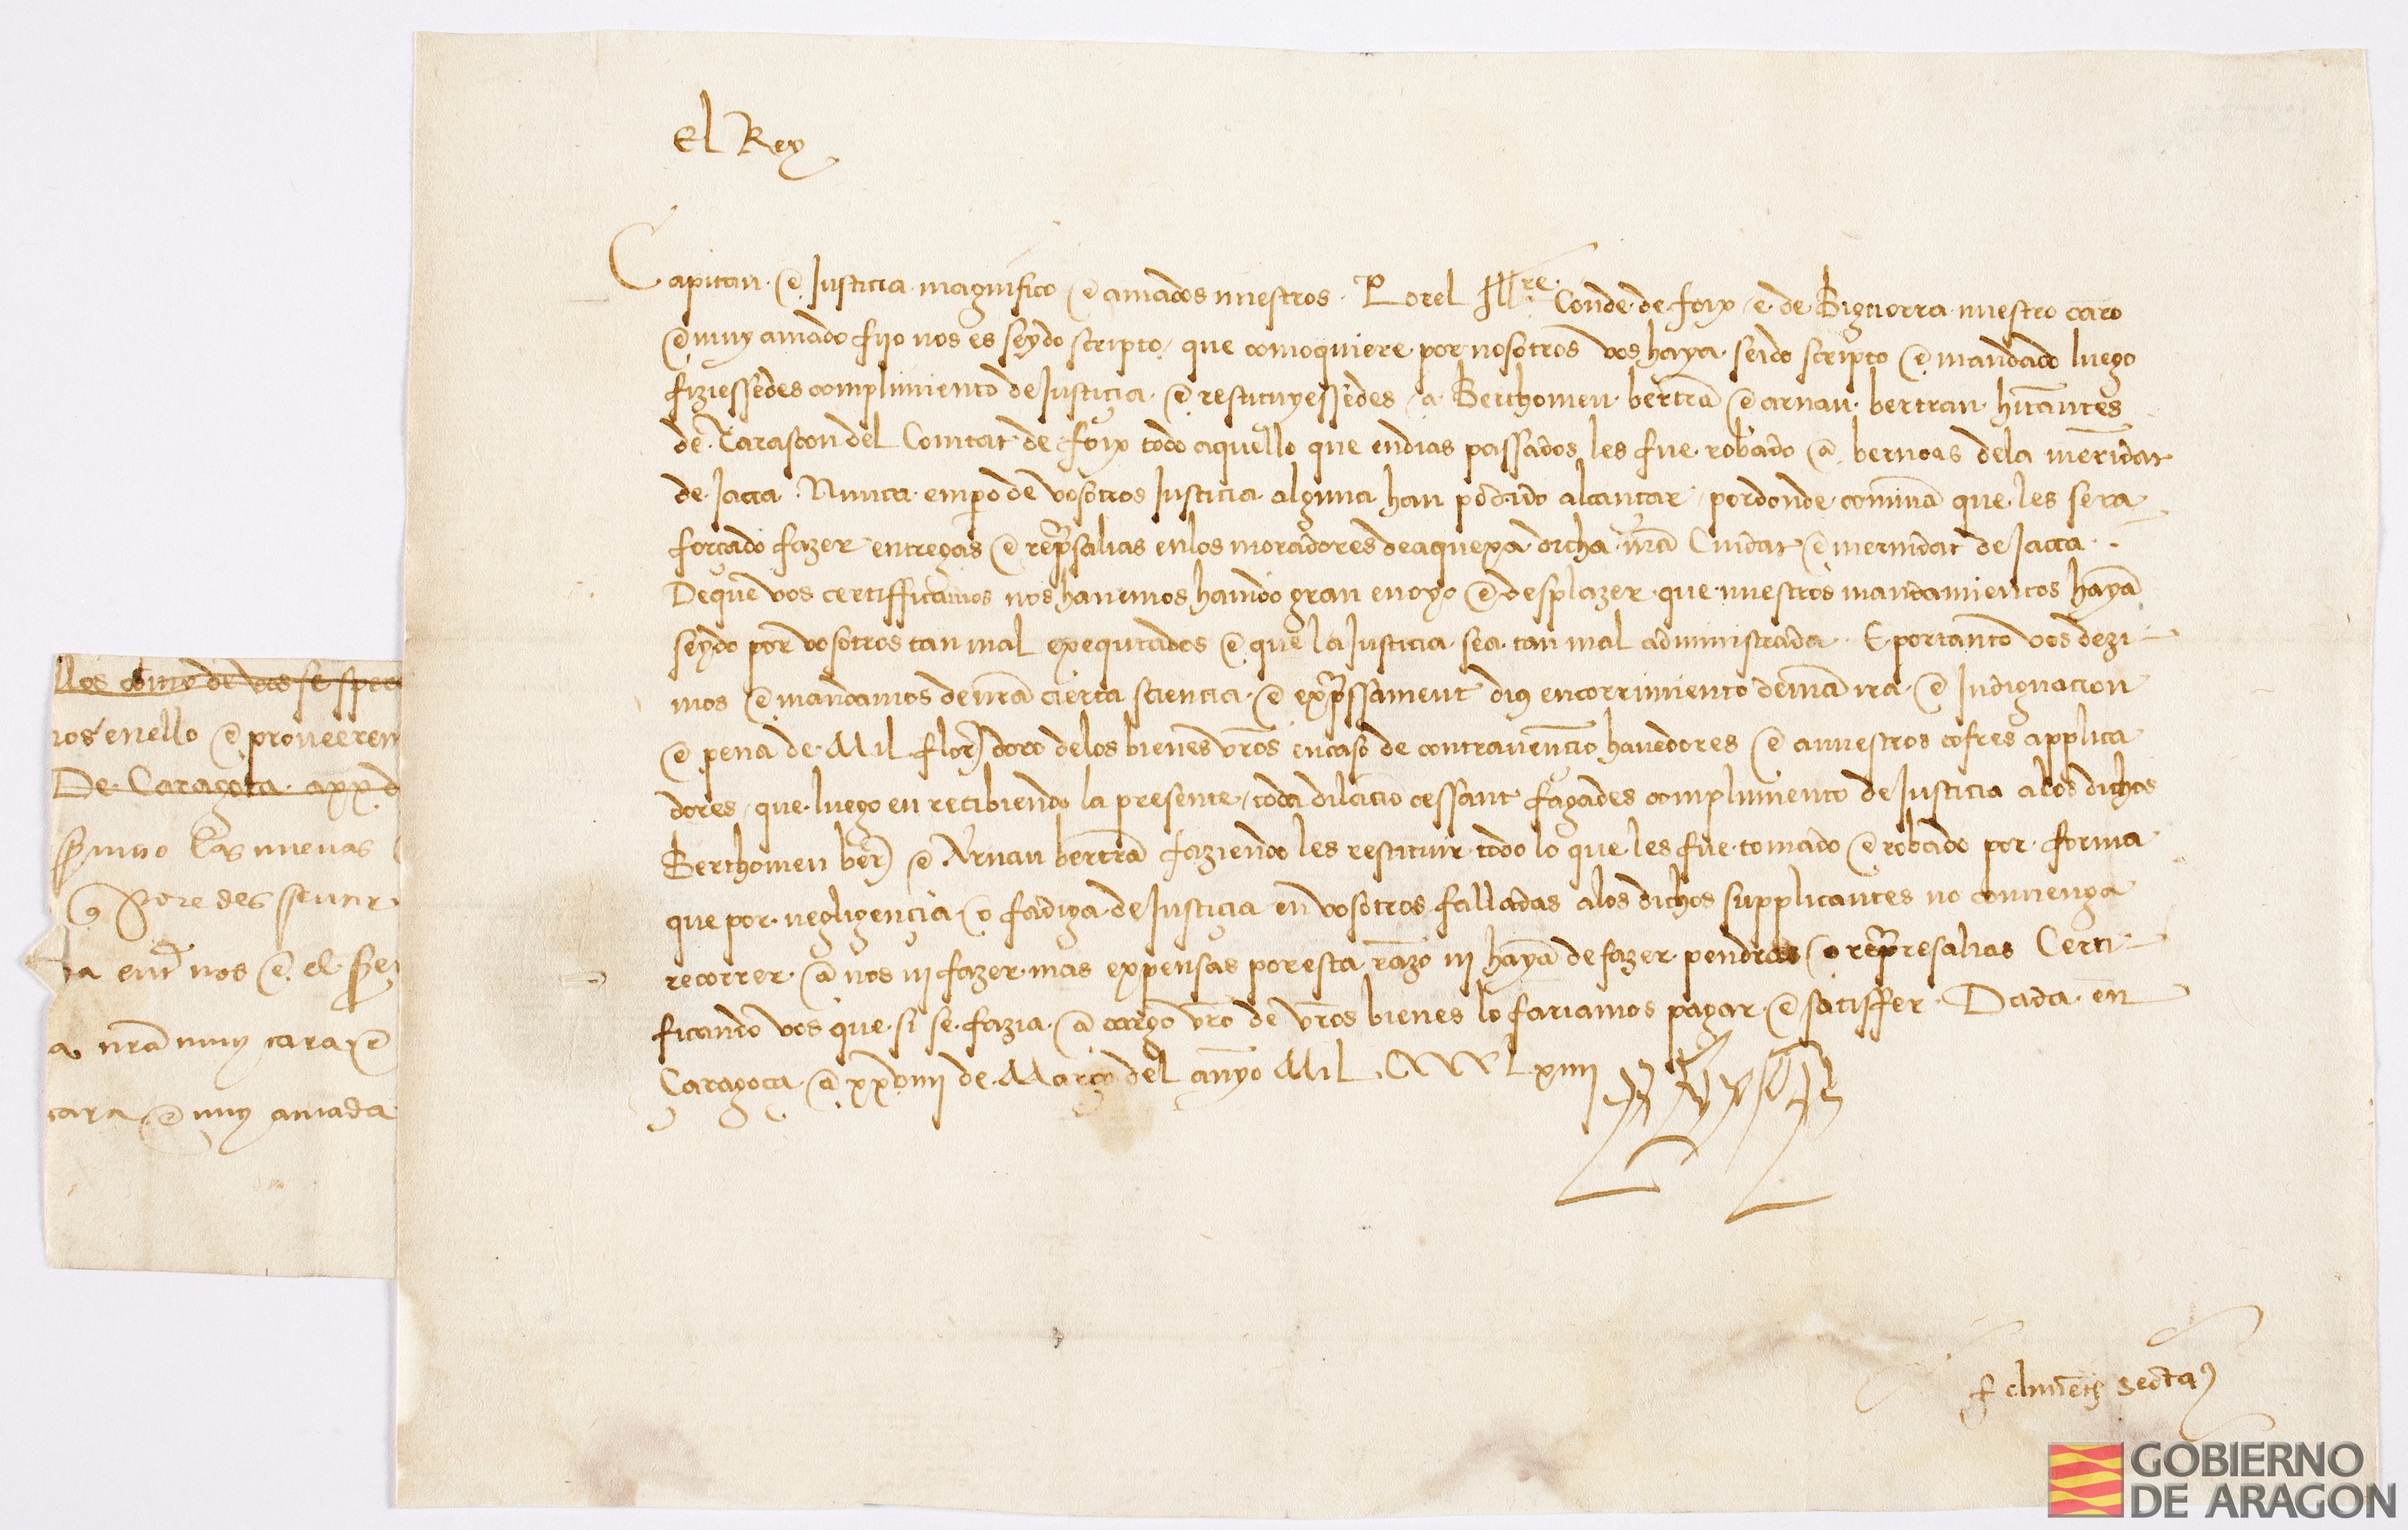 El Rey
Capitan e Justicia magnifico e amados nuestros. Por el Illre. Conde de foix e de Bignorra nuestro caro
e muy amado fijo nos es seydo scripto, que comoquiere por nosotros vos haya seido scripto e mandado luego
fiziessedes complimiento de Justicia e restituyessedes a Berthomeu bertrā e arnau bertran hītantes
de Tarascon del Comtat de foix todo aquello que en dias passados les fue robado a bernoas dela meridat
de Jacca. Nunca empo de vosotros Justicia alguna han podido alcançar, por donde conuinā que les sera
forçado fazer entregas e rep̄salias en los moradores de aquexa dicha n̄ra Ciudat e merindat de Jacca.
De que vos certifficamos nos hauemos hauido gran enoyo e desplazer que nuestros mandamientos hayā
seydo por vosotros tan mal exequtados e que la Justicia sea tan mal administrada. E portanto vos dezi-
mos e mandamos de n̄ra cierta sciencia e exp̄ssament dius encorrimiento de n̄ra ira e Indignacion
e pena de Mil flor) doro delos bienes v̄ros en caso de contrauencio hauedores e a nuestros cofres applica
dores, que luego en recibiendo la presente, toda dilacio cessant façades complimiento de Justicia alos dichos
Berthomeu ber) e Arnau bertrā faziendo les restituir todo lo que les fue tomado e robado por forma
que por negligencia o fadiga de Justicia en vosotros falladas alos dichos supplicantes no conuenga
recorrer a nos ni fazer mas expensas por esta razō ni hayā de fazer pendras o rep̄resalias Certi-
ficando vos que si se fazia a cargo v̄ro de v̄ros bienes lo fariamos pagar e satisffer. Dada en
Caragoça a xxviiii de Março del anyo Mil CCCCLxiiii
f clime̅t sec̄ta
llos como de vos se spe
nos en ello e proueerem
De Caragoça a xx d
las nueuas
ha ent nos e el
a n̄ra muy cara e
cara e muy amada
GOBIERNO
DE ARAGON